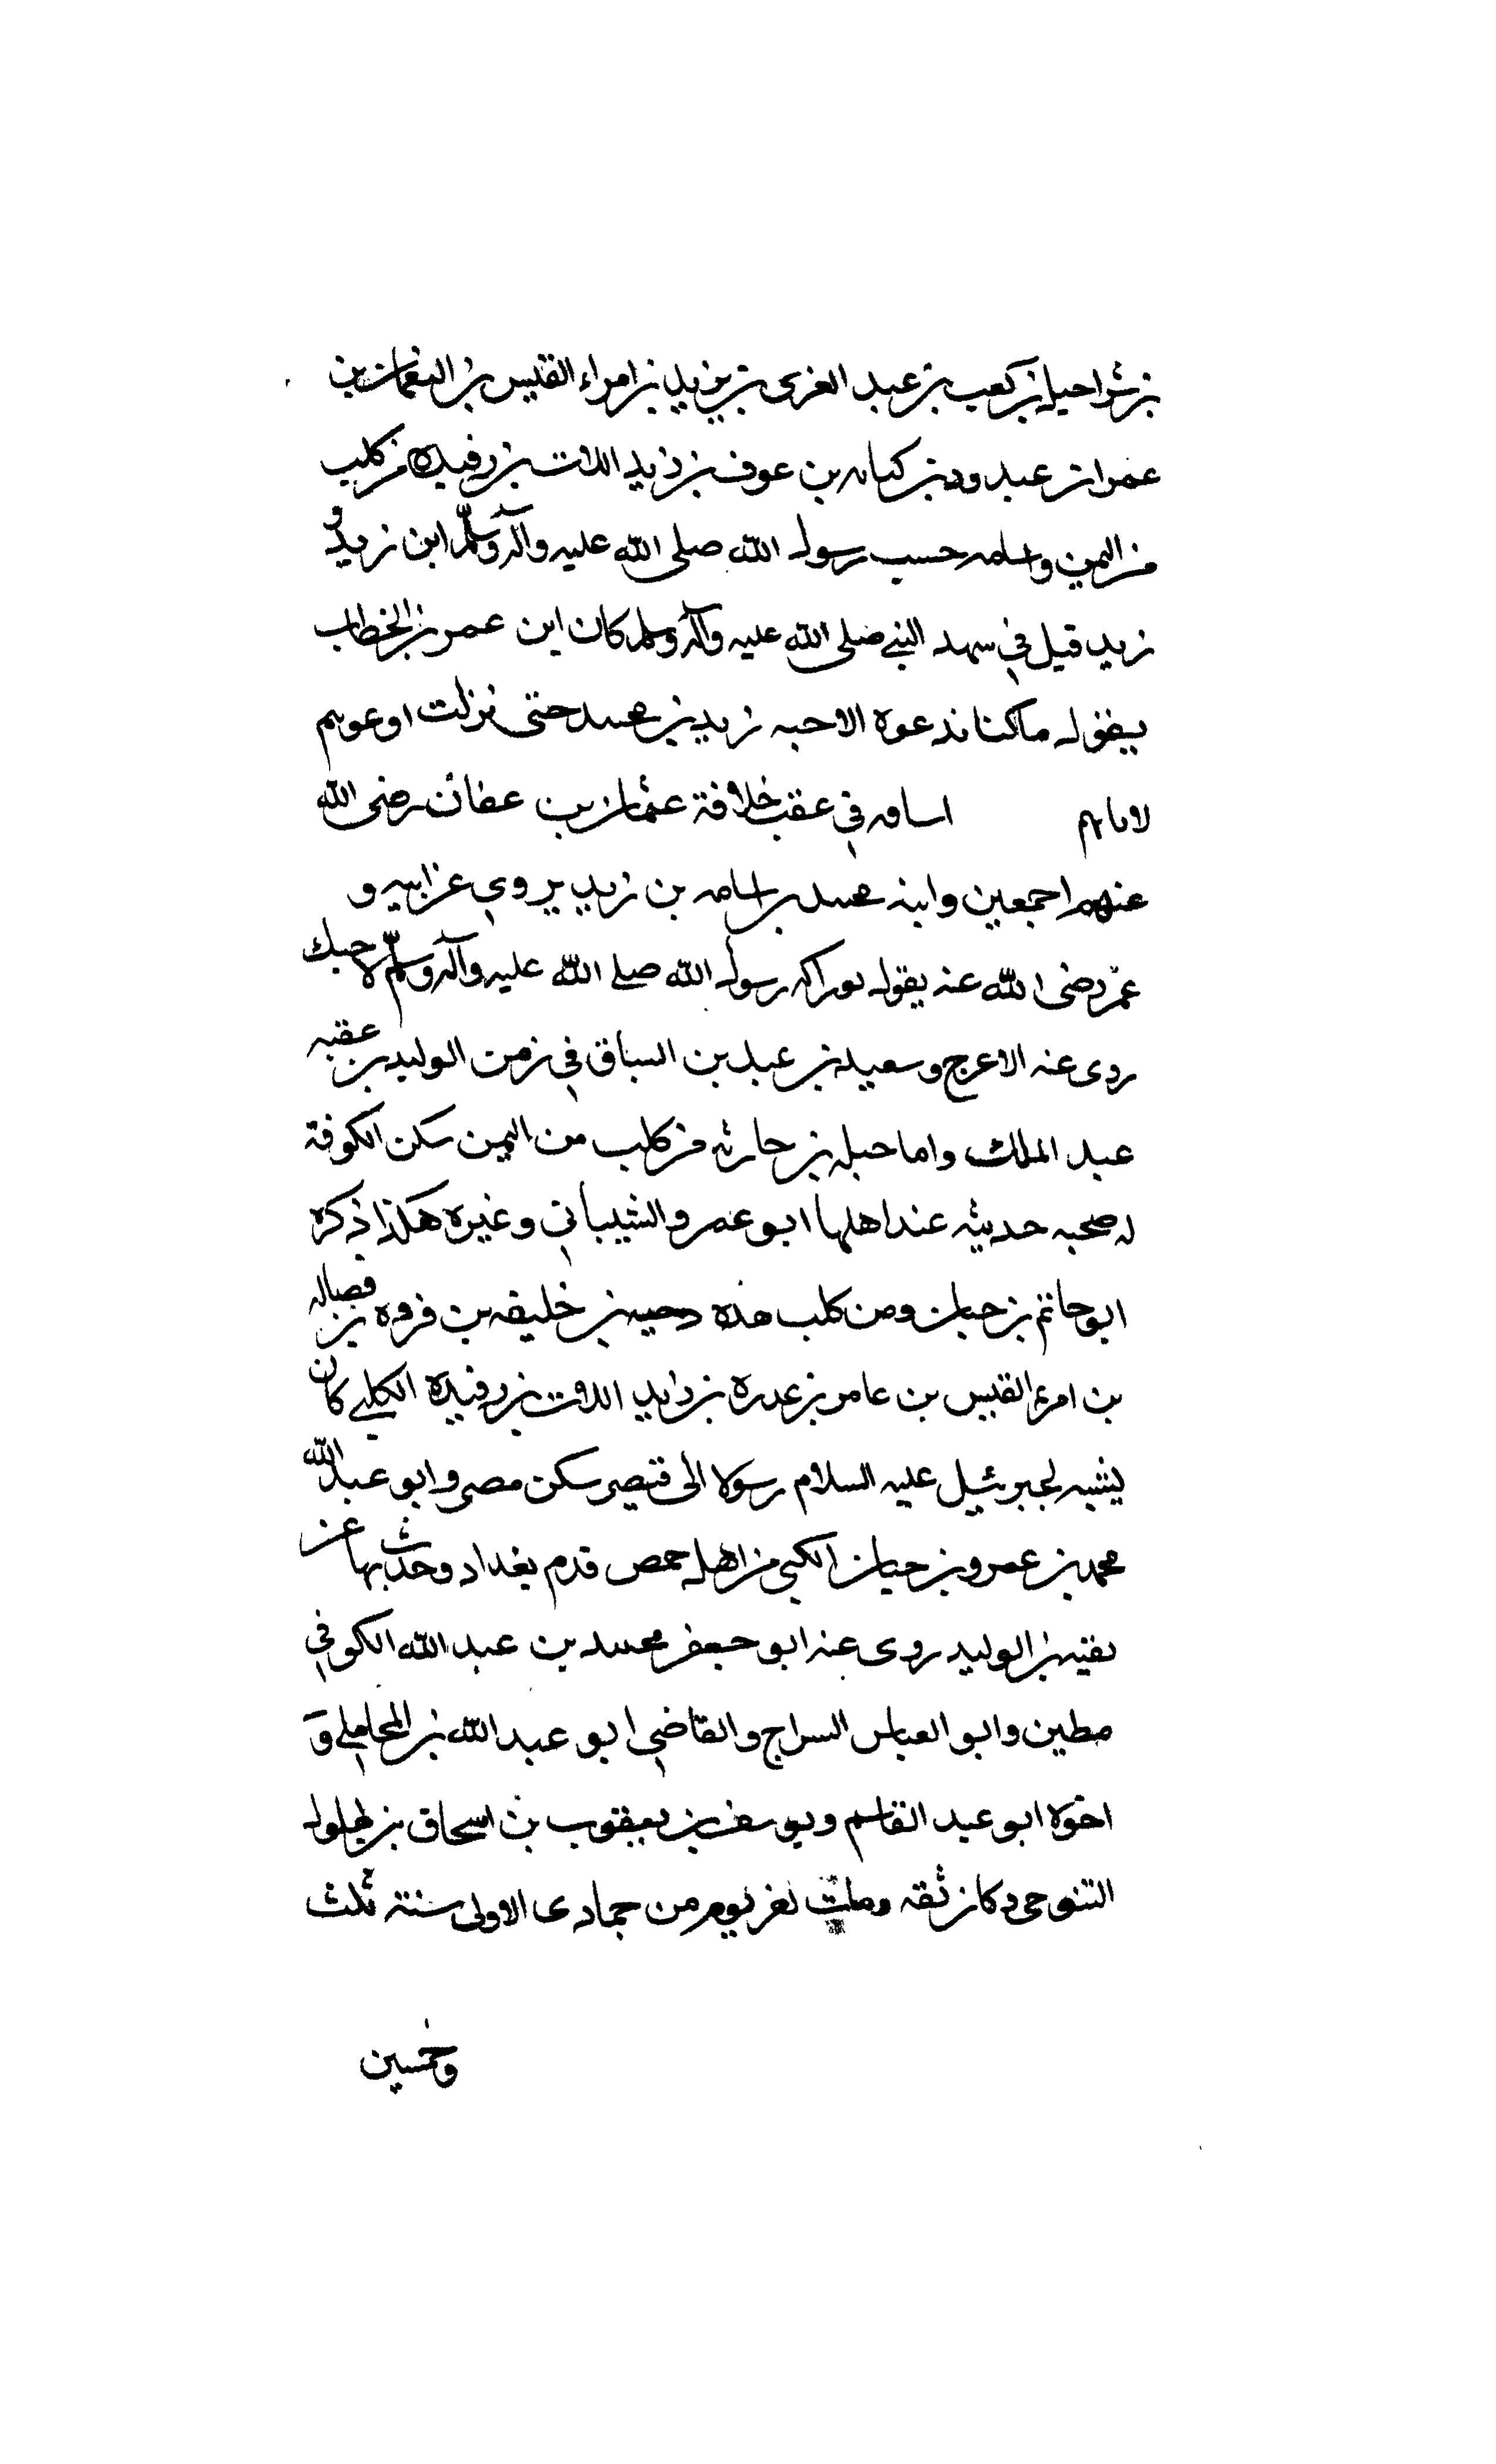 بن شراحيل بن كعب بن عبد العزى بن يزيد بن امراء القيس بن النعمان بن
عمران بن عبد ود بن كنانه بن عوف بن زيد اللات بن رفيده من كلب
من اليمن واسامه حسب رسول الله صلى الله عليه وآله وسلم ابن زيد و
زيد قيل في سهد النبي صلى الله عليه وآله وسلم كان ابن عمر بن الخطاب
يقول ما كنا ندعوه الا حبه زيد بن محمد حتى نزلت ادعوهم
لابايهم اسامه في عقب خلافة عثمان بن عفان رضى الله
عنهم اجمعين وابنه محمد بن اسامه بن زيد يروي عن ابيه و
عمر رضى الله عنه يقول لو راك رسول الله صلى الله عليه وآله وسلم لاحبك
روى عنه الاعرج وسعيد بن عبد بن السباق في زمن الوليد بن عقبه
عبد الملك واما حبله بن حارثه من كلب من اليمن سكن الكوفة
له صحبه حديثه عند اهلها ابو عمرو الشيباني وغيره هكذا ذكره
ابو حاتم بن حبان ومن كلب هذه دحيه بن خليفه بن فروه بن فضاله
بن امرئ القيس بن عامر بن عدره بن زايد اللات بن رفيده الكلبي كان
يشبه لجبرئيل عليه السلام رسولا الى قيصر سكن مصر وابو عبد الله
محمد بن عمرو بن حيان الكبي من اهل حمص قدم بغداد وحدث بها عن
بقيه بن الوليد روى عنه ابو جعفر محمد بن عبد الله الكوفي
مطين وابو العباس السراج والقاضي ابو عبد الله بن المحاملي و
اخوه ابو عبد القاسم ويوسف بن يعقوب بن اسحاق بن بهلول
التنوحى وكان ثقه ومات لغر يوم من جمادى الاولى سنته ثلث
وخمسين